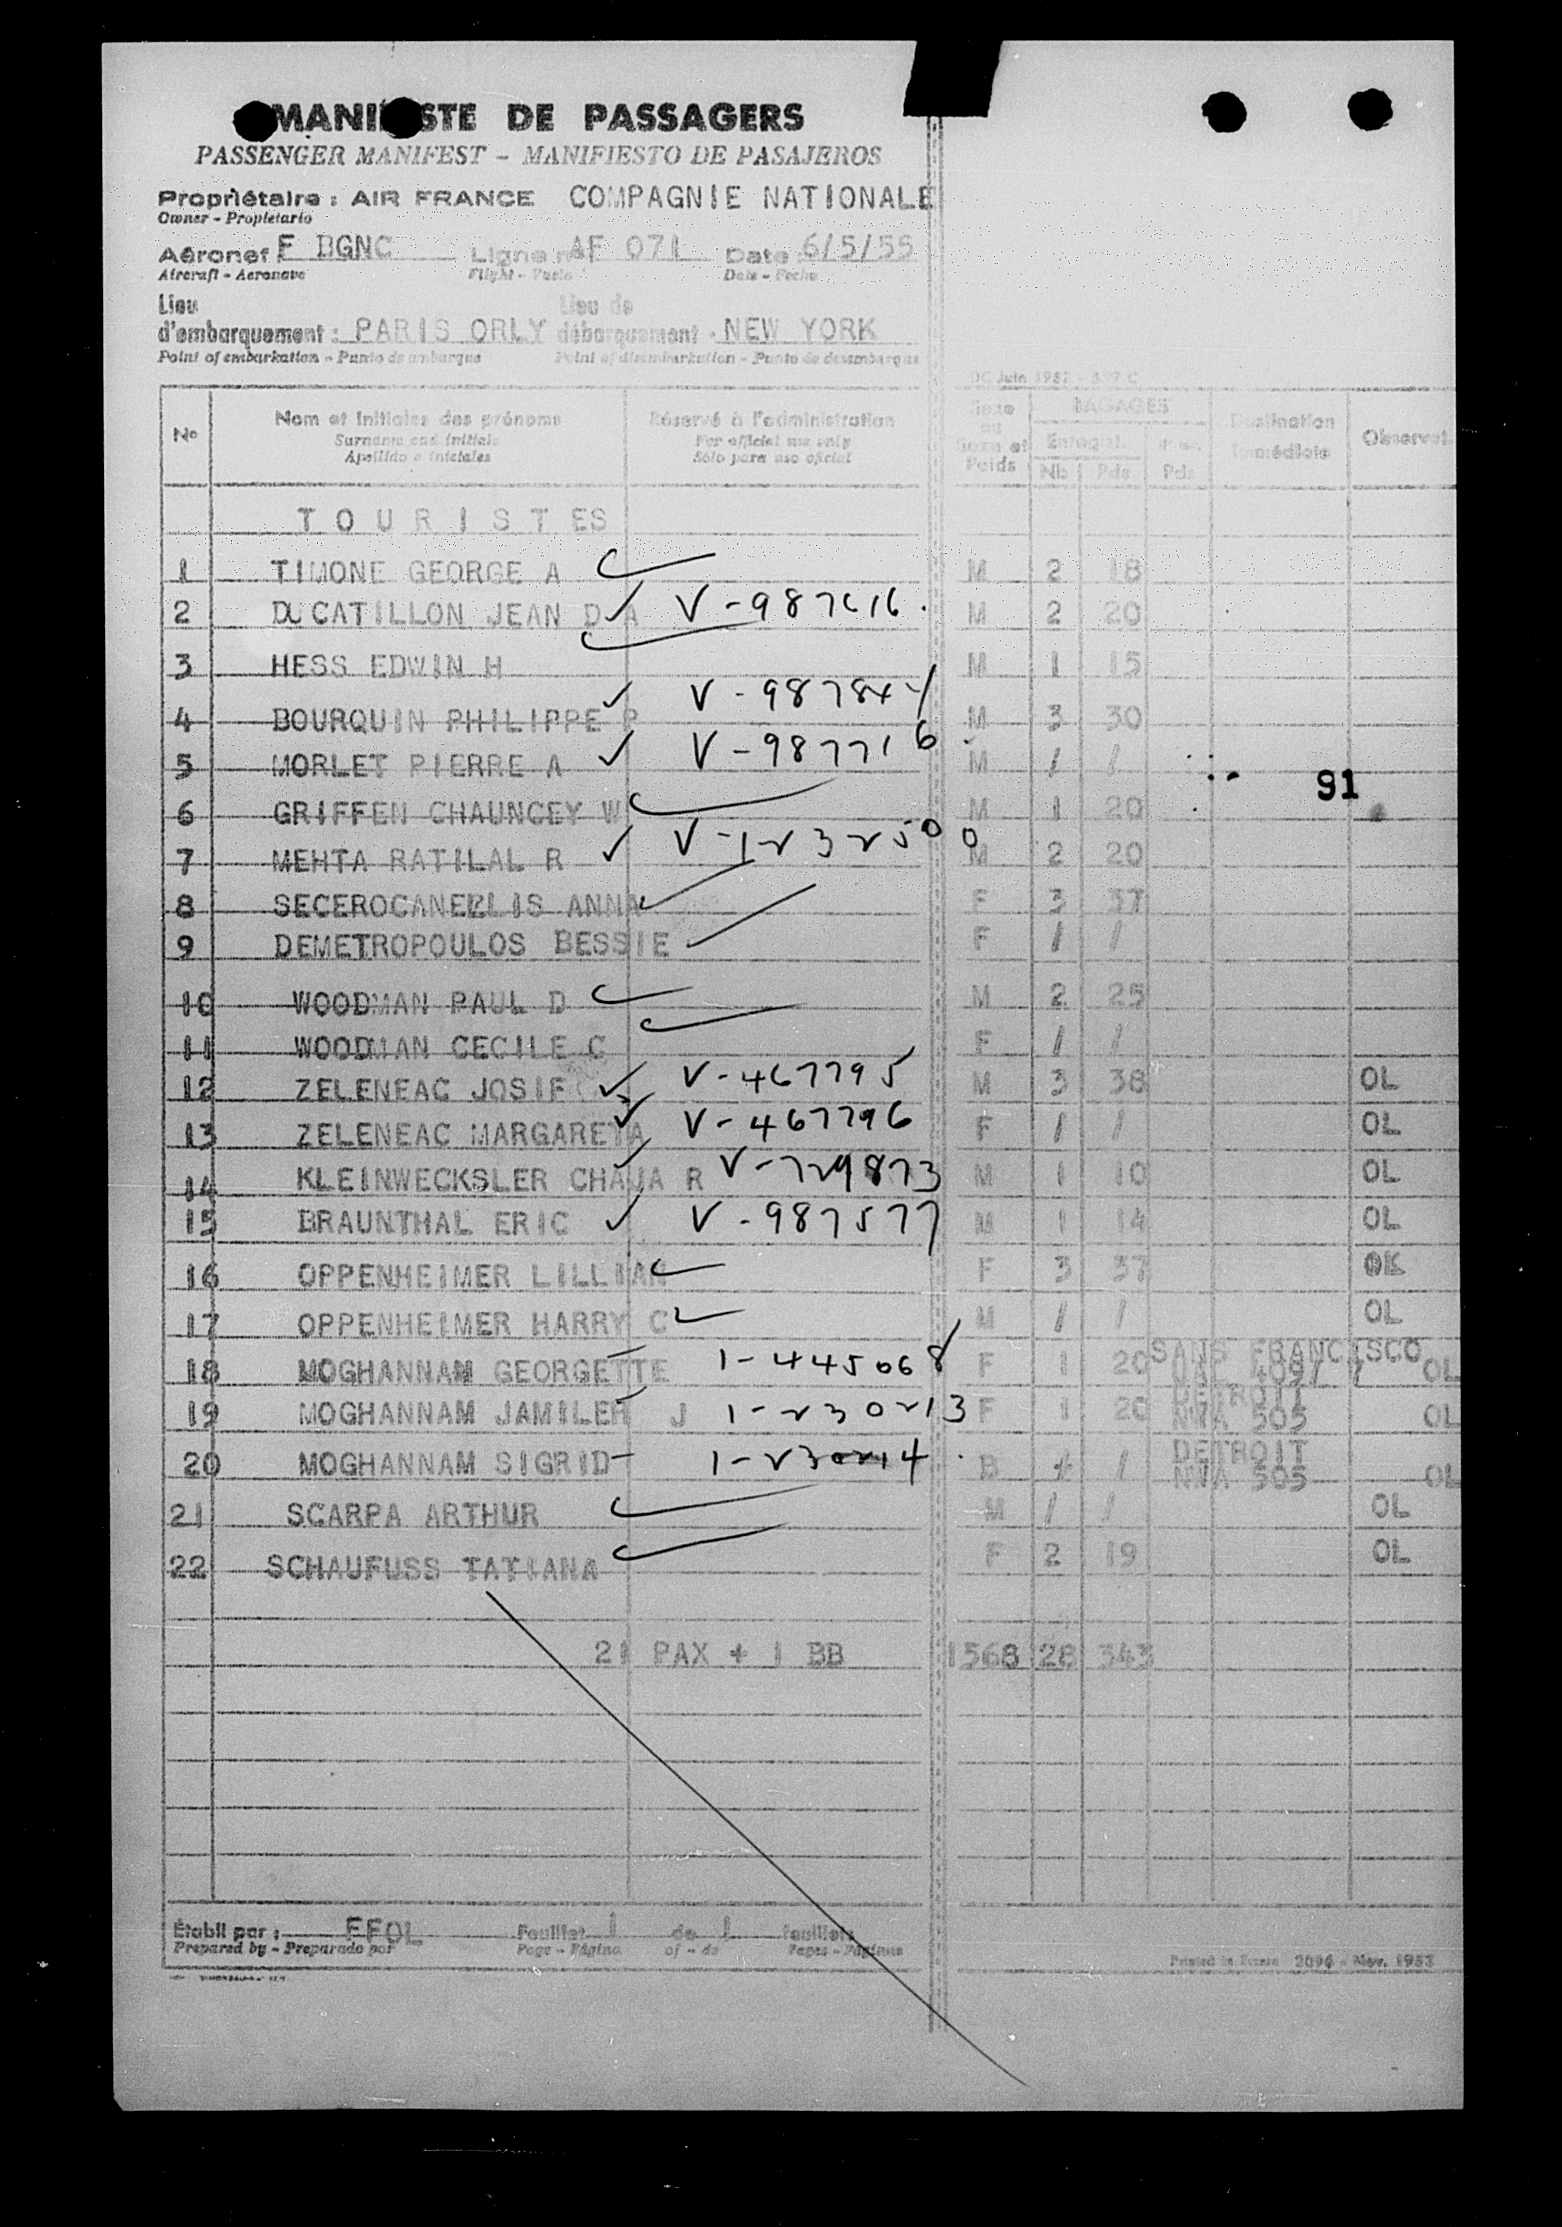 MANIFESTE DE PASSAGERS
PASSENGER MANIFEST - MANIFIESTO DE PASAJEROS
Propriétaire : AIR FRANCE COMPAGNIE NATIONALE
Owner - Propietario
Aéronef : F BGNC Ligne n° AF 071 Date : 6/5/55
Aircraft - Aeronave Flight - Vuelo Date - Fecha
Lieu Lieu de
d'embarquement : PARIS ORLY débarquement : NEW YORK
Point of embarkation - Punto de embarque Point of disembarkation - Punto de desembarque
N° Nom et initiales des prénoms Réservé à l'administration Sexe ou Sexe et Poids BAGAGES Destination Immédiate Observat.
Surname and initials For official use only Enregist.
Apellido e iniciales Sólo para uso oficial Nb Pds Pds
T O U R I S T ES
1 TIMONE GEORGE A M 2 18
2 DUCATILLON JEAN D A V-987616 M 2 20
3 HESS EDWIN H M 1 15
4 BOURQUIN PHILIPPE P V-987847 M 3 30
5 MORLET PIERRE A V-987716 M / /
91
6 GRIFFEN CHAUNCEY W M 1 20
7 MEHTA RATILAL R V-1232500 M 2 20
8 SECEROCANELLIS ANNA F 3 37
9 DEMETROPOULOS BESSIE F / /
10 WOODMAN PAUL D M 2 25
11 WOODMAN CECILE C F / /
12 ZELENEAC JOSIF V-467795 M 3 38 OL
13 ZELENEAC MARGARETA V-467796 F / / OL
14 KLEINWECKSLER CHAJA R V-729873 M 1 10 OL
15 BRAUNTHAL ERIC V-987577 M 1 14 OL
16 OPPENHEIMER LILLIAN F 3 37 OK
17 OPPENHEIMER HARRY C M / / OL
18 MOGHANNAM GEORGETTE 1-445068 F 1 20 SANS FRANCISCO UAL 409/ / OL
19 MOGHANNAM JAMILEH J 1-230213 F 1 20 DETROIT NWA 505 OL
20 MOGHANNAM SIGRID 1-230214 B + / DETROIT NWA 505 OL
21 SCARPA ARTHUR M / / OL
22 SCHAUFUSS TATIANA F 2 19 OL
21 PAX + 1 BB 1568 28 343
Établi par : FFOL Feuillet 1 de 1 feuillets
Prepared by - Preparado por Page - Página of - de Pages - Páginas
Printed in France 2096 - Nov. 1953